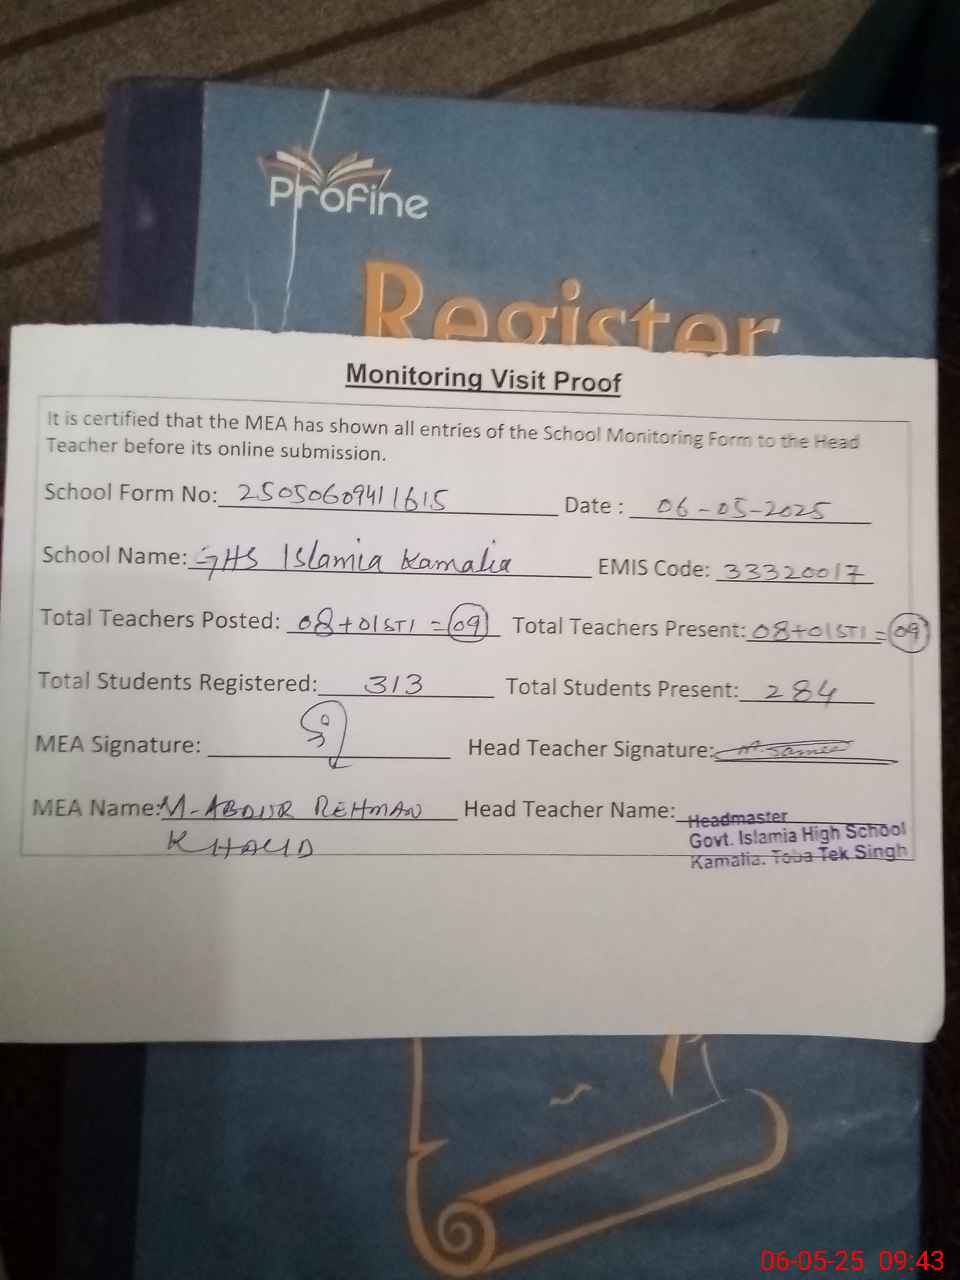 Profine
Register
Monitoring Visit Proof
It is certified that the MEA has shown all entries of the School Monitoring Form to the Head
Teacher before its online submission.
School Form No: 25050609411615 Date : 06-05-2025
School Name: GHS Islamia Kamalia EMIS Code: 33320017
Total Teachers Posted: 08+01STI = 09 Total Teachers Present: 08+01STI = 09
Total Students Registered: 313 Total Students Present: 284
MEA Signature: Head Teacher Signature:
MEA Name: M-ABDUR REHMAN Head Teacher Name:
KHALID
Headmaster
Govt. Islamia High School
Kamalia. Toba Tek Singh
06-05-25 09:43